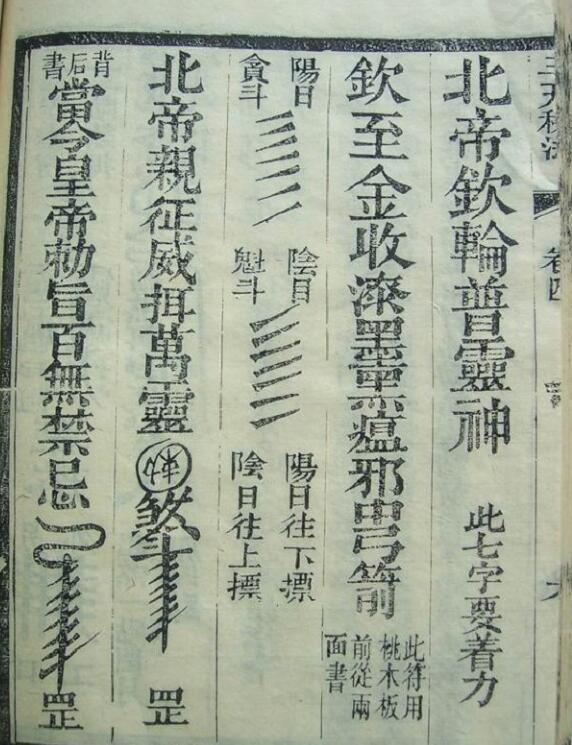 卷四
北帝欽輪普靈神 此七字要着力
欽至金收漆墨黑瘟邪弓箭 此符用桃木板前從兩面書
陽日 陰日 陽日往下摽
貪斗 魁斗 陰日往上摽
北帝親征威萬靈 煞 罡
背后書 當今皇帝勅旨百無禁忌 罡